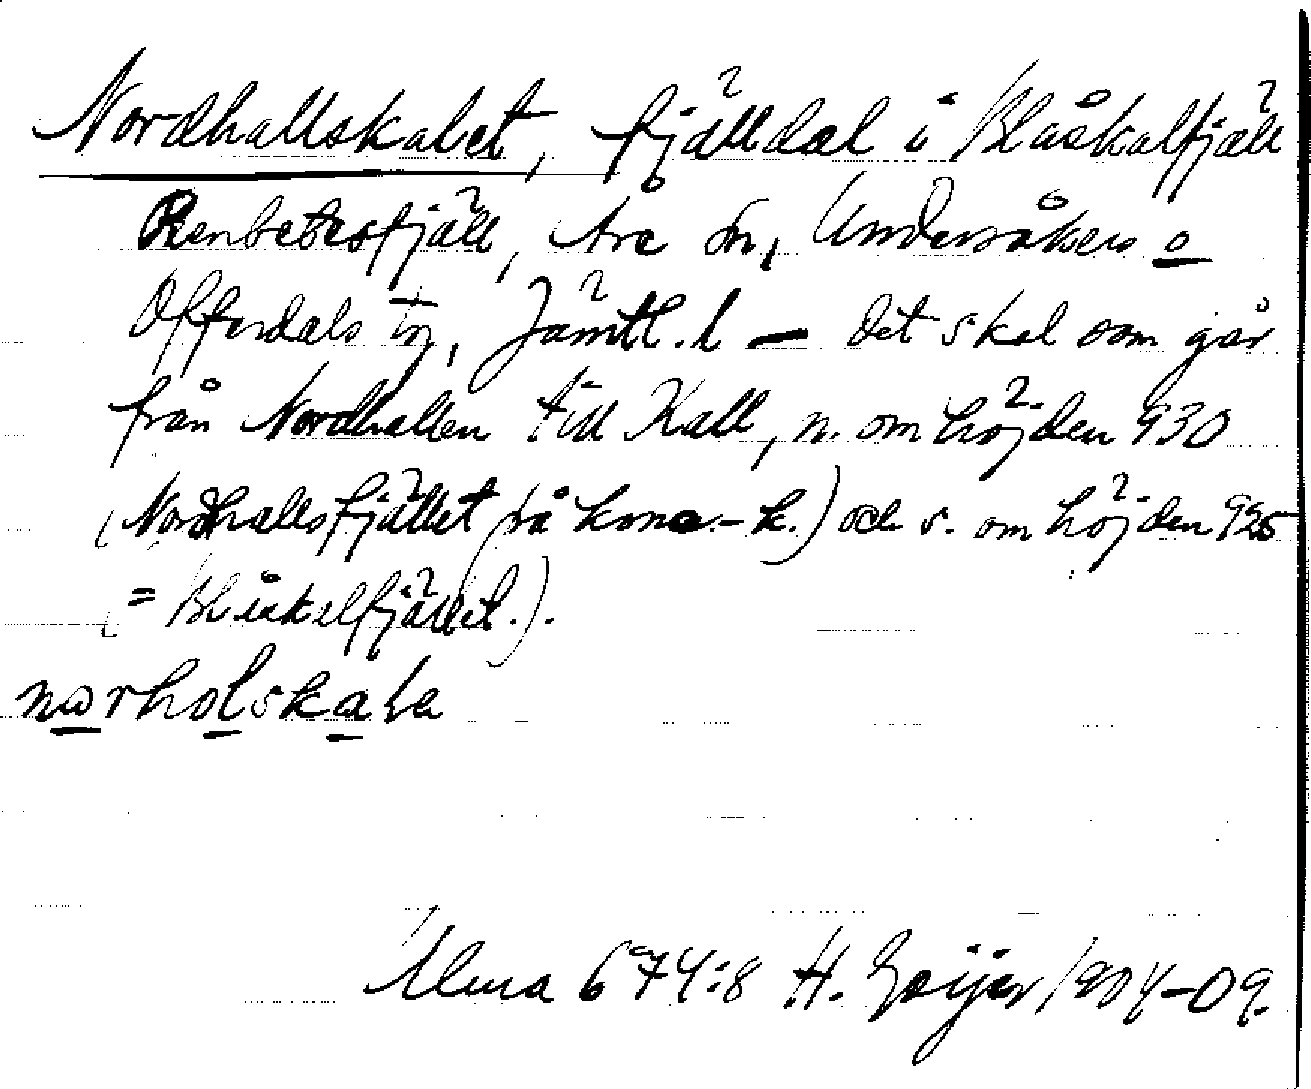 Nordhallskalet, fjälldal i Blåskalfjäll
Renbetesfjäll, Åre sn, Undersåkers o
Offerdals tg, Jämtl. l — det skal som går
från Nordhallen till Kall, n. om höjden 930
(Nordhallsfjället på konc.-k.) och s. om höjden 925
(= Blåskalfjället.).
norholskala
Ulma 674:8 H. Geijer 1904-09.